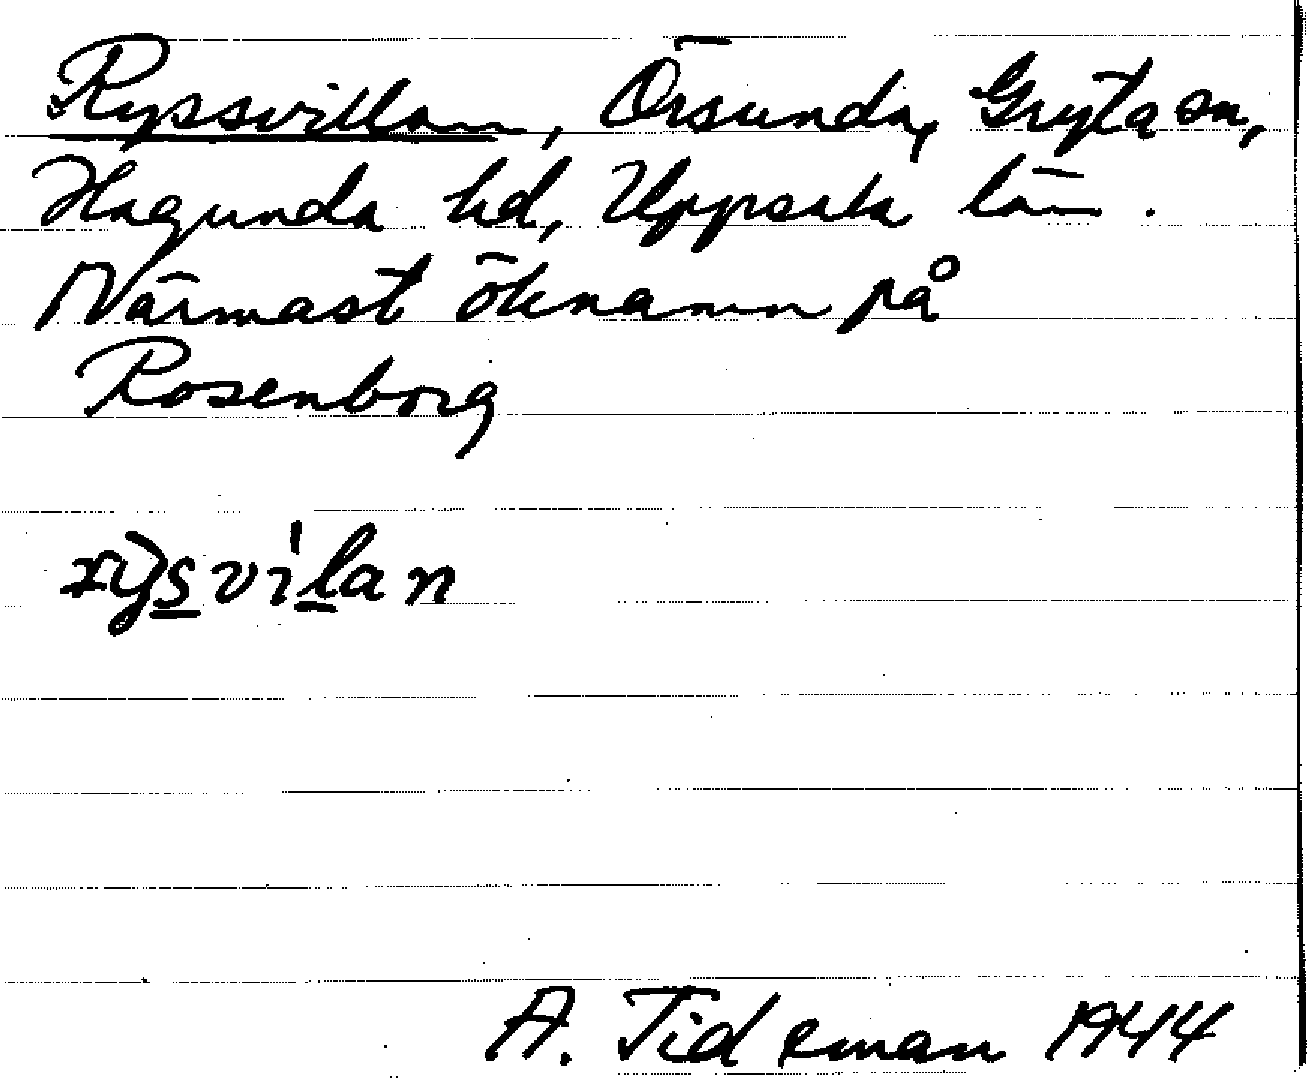 Ryssvillan, Örsunda, Gryta sn,
Hagunda hd, Uppsala län.
Närmast öknamn på
Rosenborg
rỳs̲vìl̲an
A. Tideman 1944